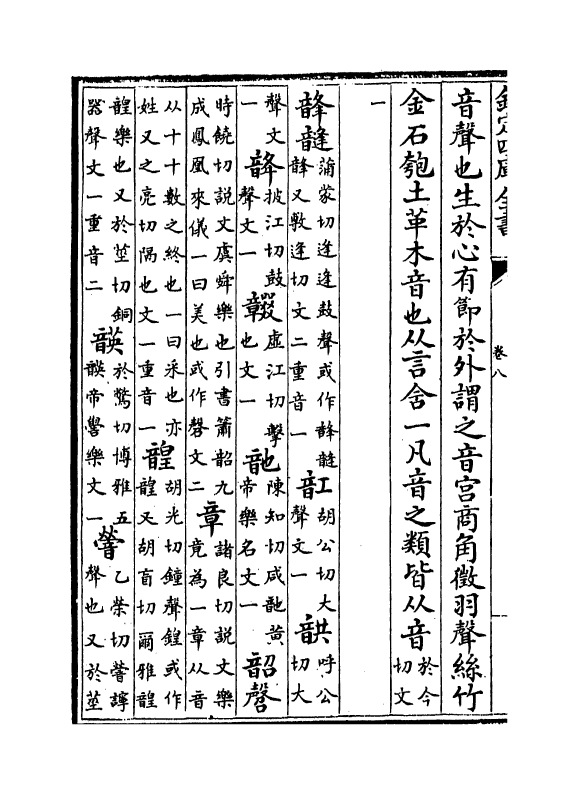 欽定四庫全書
卷八
音聲也生於心有節於外謂之音宮商角徵羽聲絲竹
金石匏土革木音也从言含一凡音之類皆从音於今切文
一
韸韼蒲蒙切逄逄鼓聲或作韸韼韸又敷逄切文二重音一䪦胡公切大聲文一呼公切大
聲文一披江切鼓聲文一虛江切擊也文一陳知切咸黃帝樂名文一韶磬
時饒切說文虞舜樂也引書簫韶九成鳳凰來儀一曰美也或作磬文二章諸良切說文樂竟為一章从音
从十十數之終也一曰采也亦姓又之亮切隔也文一重音一韹胡光切鐘聲鍠或作韹又胡盲切爾雅韹
韹樂也又於莖切銅器聲文一重音二韺於驚切博雅五韺帝嚳樂文一乙榮切聲也又於莖